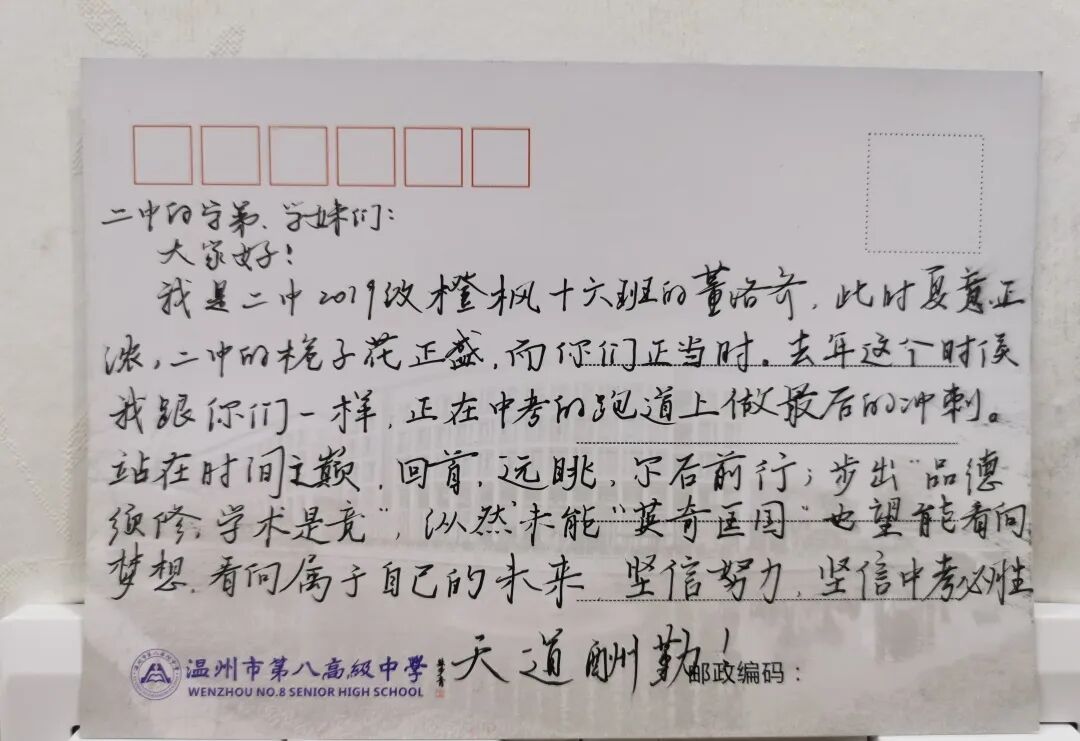 二中的学弟、学妹们：
大家好！
我是二中2019级橙枫十六班的董洛奇，此时夏意正
浓，二中的栀子花正盛，而你们正当时。去年这个时候
我跟你们一样，正在中考的跑道上做最后的冲刺。
站在时间之巅，回首，远眺，尔后前行；步出“品德
须修，学术是竞”，纵然未能“英奇匡国”也望能看向
梦想，看向属于自己的未来，坚信努力，坚信中考必胜
天道酬勤！
温州市第八高級中學
WENZHOU NO.8 SENIOR HIGH SCHOOL
邮政编码：